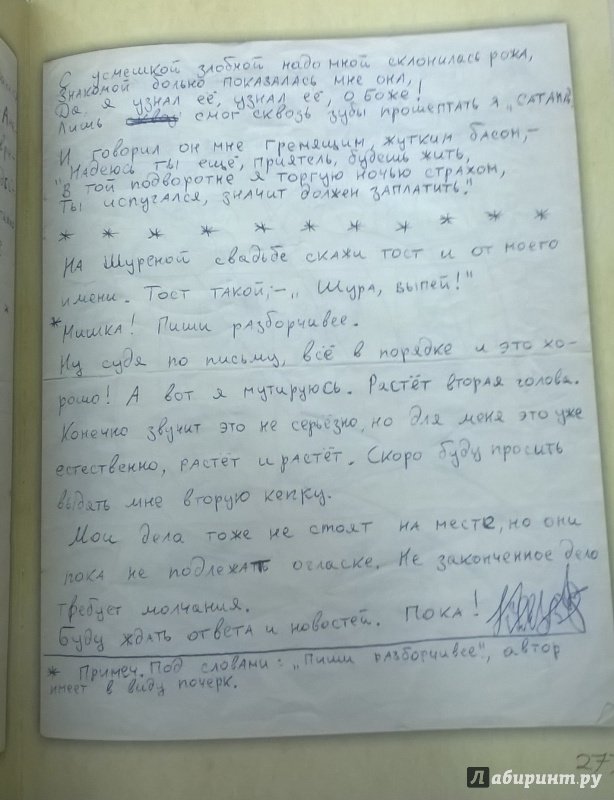 С усмешкой злобной надо мной склонилась рожа,
Знакомой больно показалась мне она,
Да, я узнал её, узнал её, о Боже!
Лишь смог сквозь зубы прошептать я „Сатана
И говорил он мне гремящим, жутким басом,–
"Надеюсь ты ещё, приятель, будешь жить,
В той подворотне я торгую ночью страхом,
Ты испугался, значит должен заплатить."
* * * * * * * * * * *
На Шурсной свадьбе скажи тост и от моего
имени. Тост такой;–„ Шура, выпей!"
* Мишка! Пиши разборчивее.
Ну судя по письму, всё в порядке и это хо-
рошо! А вот я мутируюсь. Растёт вторая голова.
Конечно звучит это не серьёзно, но для меня это уже
естественно, растёт и растёт. Скоро буду просить
выдать мне вторую кепку.
Мои дела тоже не стоят на месте, но они
пока не подлежат огласке. Не законченное дело
требует молчания.
Буду ждать ответа и новостей. Пока!
* Примеч. Под словами: „Пиши разборчивее", автор
имеет в виду почерк.
277
Лабиринт.ру